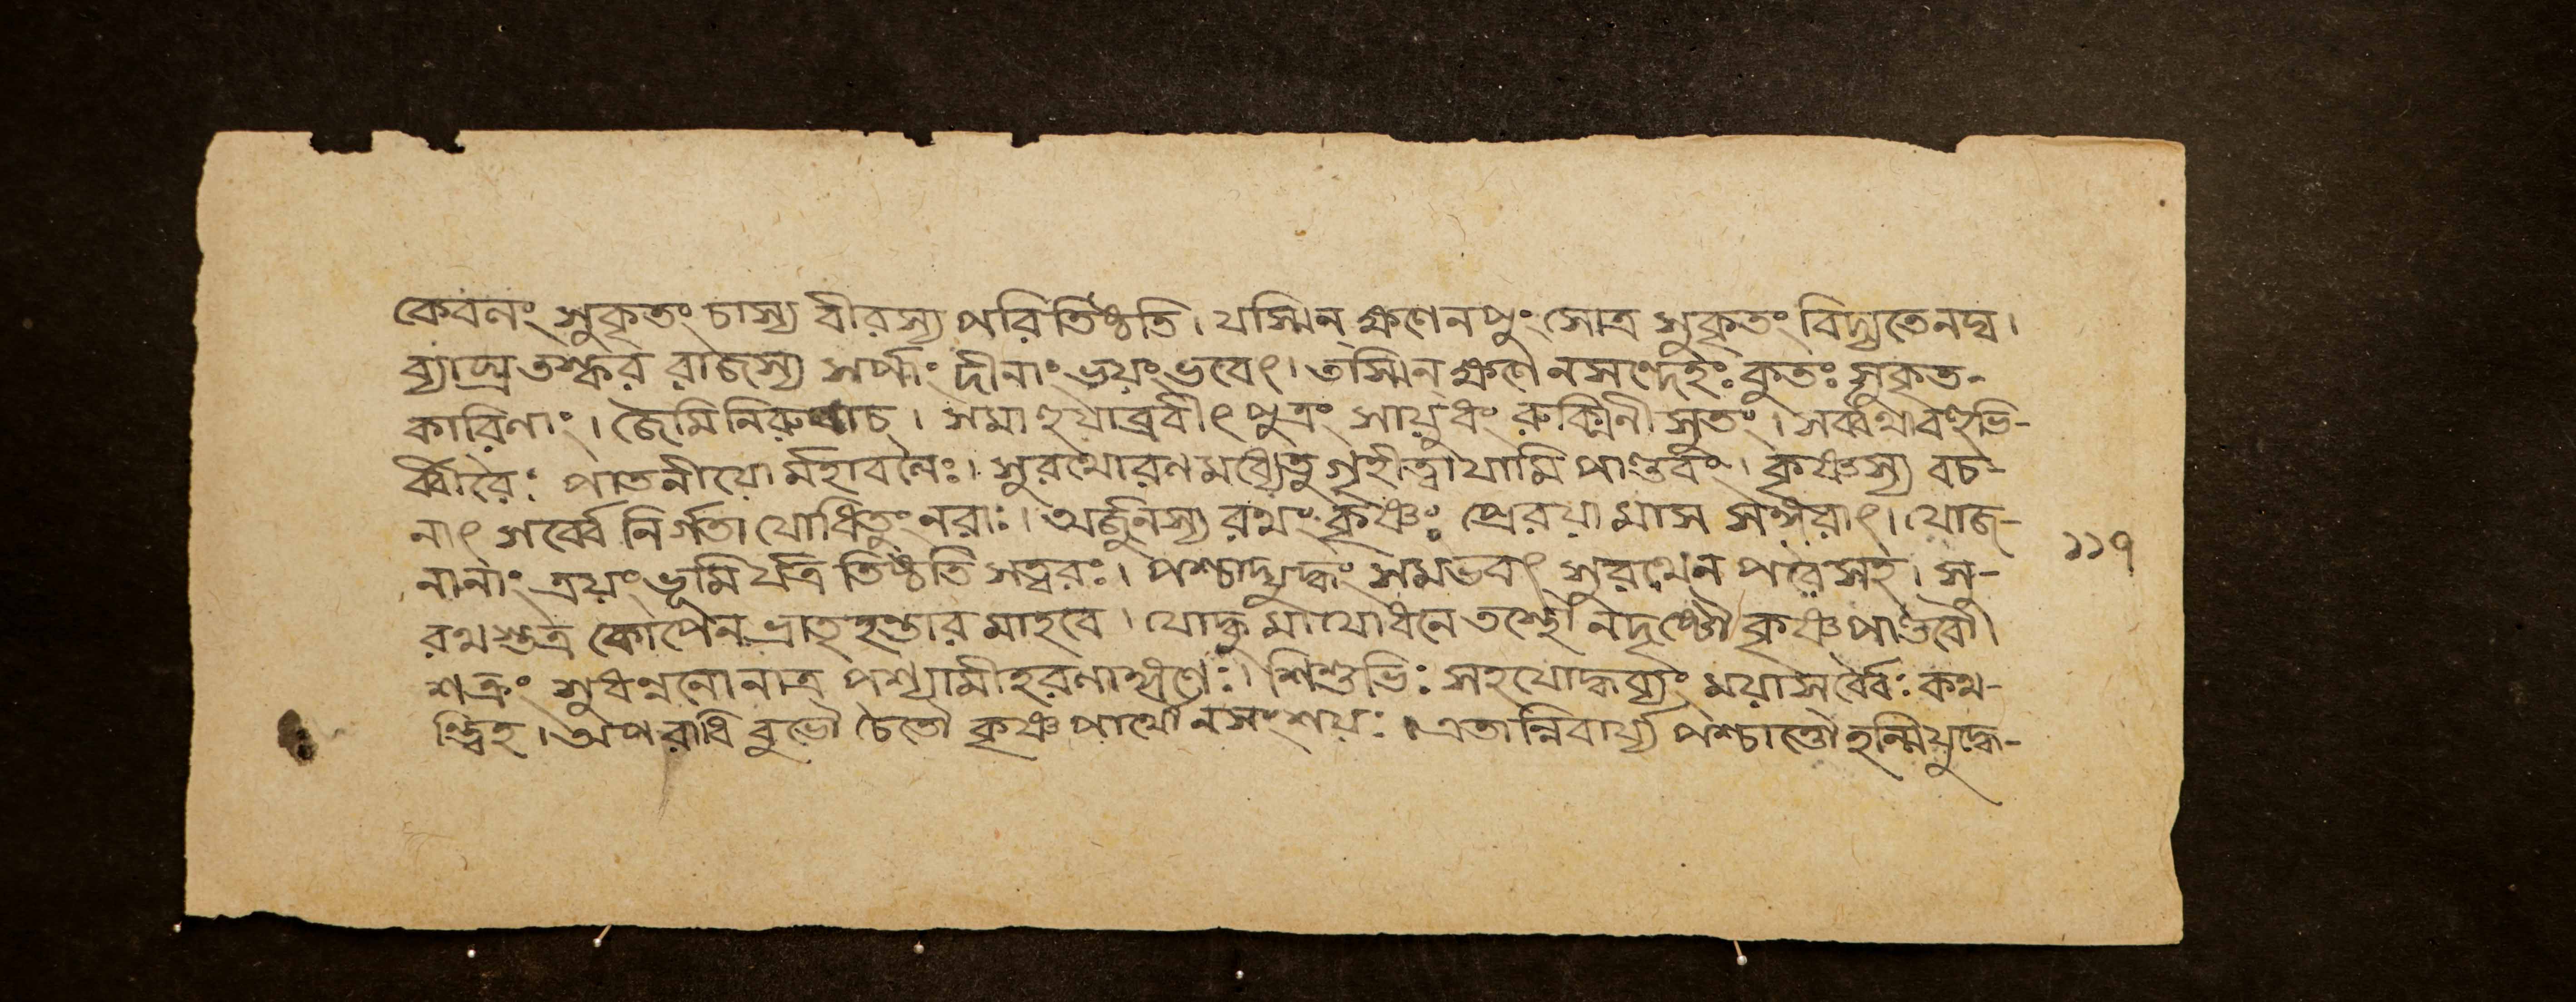 কেবলং সুকৃতং চাস্য বীরস্য পরিতিষ্ঠতি। যস্মিন্ ক্ষণেনপুং সোত্র সুকৃতং বিদ্যতেনঘ।
ব্যাঘ্র তস্কর রাজস্য সর্পাং দীনাং ভয়ং ভবেৎ। তস্মিন্ ক্ষণে নসন্দেহঃ কুতঃ সুকৃত-
কারিণাং। জৈমিনিরুবাচ। সমাহূয়াব্রবীৎ পুত্রং সায়ুধং রুক্মিনী সুতং। সর্ব্বথাবহুভি-
র্ব্বীরৈঃ পাতনীয়ো র্মহাবলৈঃ। সুরথোরণমধ্যেতু গৃহীত্বাযামি পাণ্ডবং। কৃষ্ণস্য বচ-
নাৎ সর্ব্বে নির্গতা যোধিতুং নরাঃ। অর্জুনস্য রথং কৃষ্ণঃ প্রেরয়ামাস সর্বরাৎ। যোজ-
নানাং ত্রয়ং ভূমি র্যত্র তিষ্ঠতি সত্বরঃ। পশ্চাদ্যুদ্ধং সমভবাৎ সুরথেন পরৈসহ। সু-
রথস্তত্র কোপেন ভ্রাতৃহন্তার মাহবে। যোদ্ধুমাযোধনে তস্থৌ নদৃষ্টৌ কৃষ্ণপাণ্ডবৌ।
শত্রুং সুধন্বনোনাত্র পশ্যামীহরণাঙ্গণেঃ। শিশুভিঃ সহযোদ্ধব্যং ময়াসর্বৈবঃ কথ-
ন্ত্বিহ। অপরাধি বুভৌ চৈতৌ কৃষ্ণপার্থৌ নসংশয়ঃ। এতান্নিবার্য্য পশ্চাত্তৌ হন্মিযুদ্ধ-
১১৭